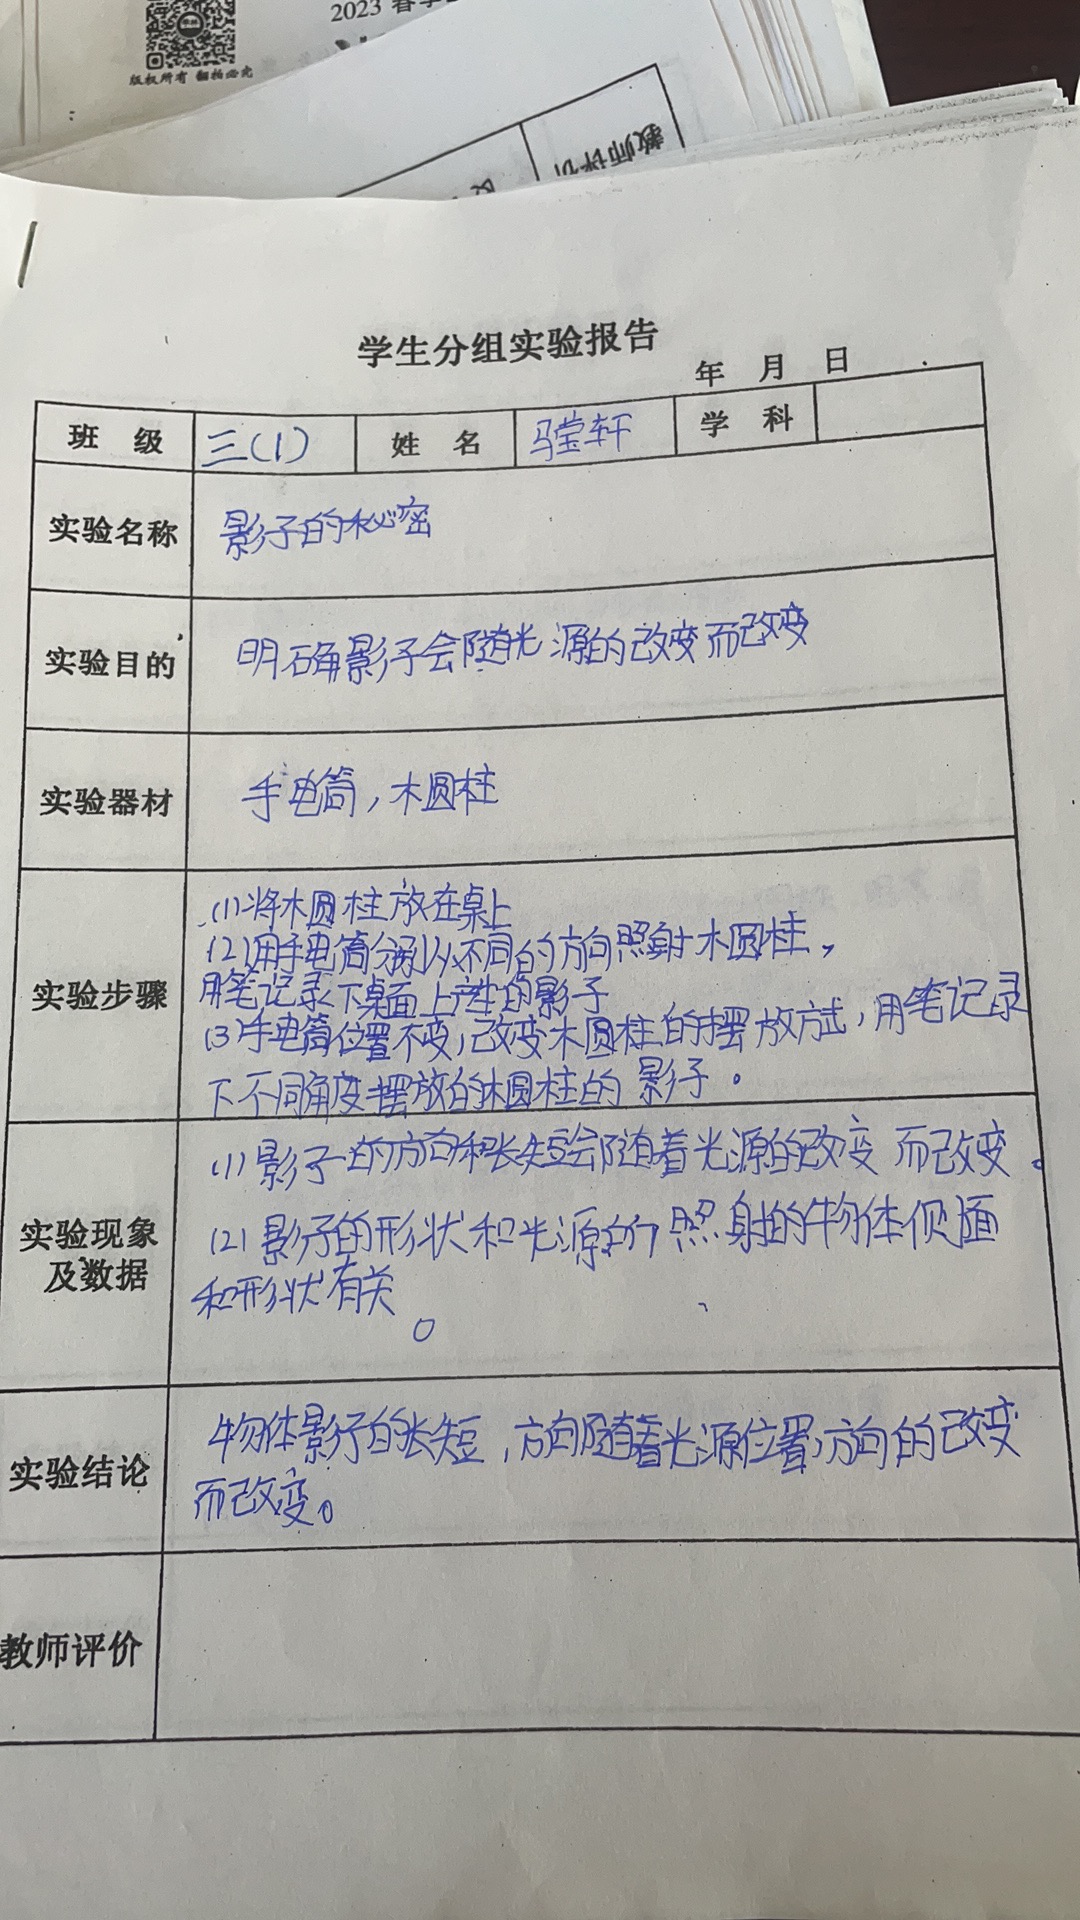 2023 春季
版权所有 翻拍必究
教师评价
学生分组实验报告
年 月 日
班 级 三(1) 姓 名 马莹轩 学 科
实验名称 影子的秘密
实验目的 明确影子会随光源的改变而改变
实验器材 手电筒,木圆柱
实验步骤
(1)将木圆柱放在桌上
(2)用手电筒分别从不同的方向照射木圆柱,
用笔记录下桌面上产生的影子
(3)手电筒位置不变,改变木圆柱的摆放方式,用笔记录
下不同角度摆放的木圆柱的影子。
实验现象
及数据
(1)影子的方向和长短会随着光源的改变而改变。
(2)影子的形状和光源的照射的物体侧面
和形状有关。
实验结论
物体影子的长短,方向随着光源位置,方向的改变
而改变。
教师评价